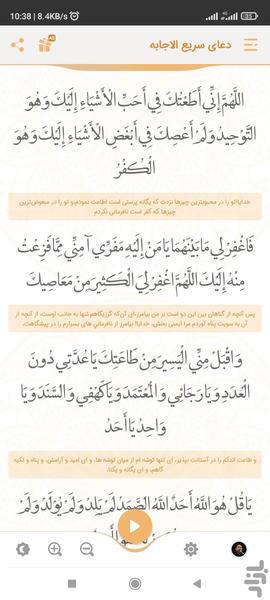 10:38 | 8.4KB/s
85
دعای سریع الاجابه
اَللّهُمَّ اِنّی اَطَعْتُكَ فی اَحَبِّ الْأَشْیاءِ اِلَیْكَ وَهُوَ
التَّوْحیدُ وَلَمْ اَعْصِكَ فی اَبْغَضِ الْأَشْیاءِ اِلَیْكَ وَهُوَ
الْكُفْرُ
خدایا!تو را در محبوبترین چیزها نزدت که یگانه پرستی است اطاعت نمودم،و تو را در مبغوض‌ترین
چیزها که کفر است نافرمانی نکردم
فَاغْفِرْ لی ما بَیْنَهُما یا مَنْ اِلَیْهِ مَفَرّی آمِنّی مِمَّا فَزِعْتُ
مِنْهُ اِلَیْكَ اَللّهُمَّ اغْفِرْ لِیَ الْكَثیرَ مِنْ مَعاصیكَ
پس آنچه از گناهان بین این دو است بر من بیامرز،ای آن‌که گریزگاهم تنها به جانب اوست، از آنچه از
آن به سویت پناه آوردم مرا ایمنی بخش، خدایا! بیامرز از نافرمانی های بسیارم را در پیشگاهت،
وَاقْبَلْ مِنِّی الْیَسیرَ مِنْ طاعَتِكَ یا عُدَّتی دُونَ
الْعُدَدِ وَیا رَجائی وَالْمُعْتَمَدَ وَیا كَهْفی وَالسَّنَدَ وَیا
واحِدُ یا اَحَدُ
و طاعت اندکم را در آستانت بپذیر، ای تنها توشه ام از میان توشه ها، و ای امید و آرامش، و پناه و تکیه
گاهم، و ای یگانه و یکتا،
یا قُلْ هُوَ اللهُ اَحَدٌ اَللهُ الصَّمَدُ لَمْ یَلِدْ وَلَمْ یُولَدْ وَلَمْ
بازار